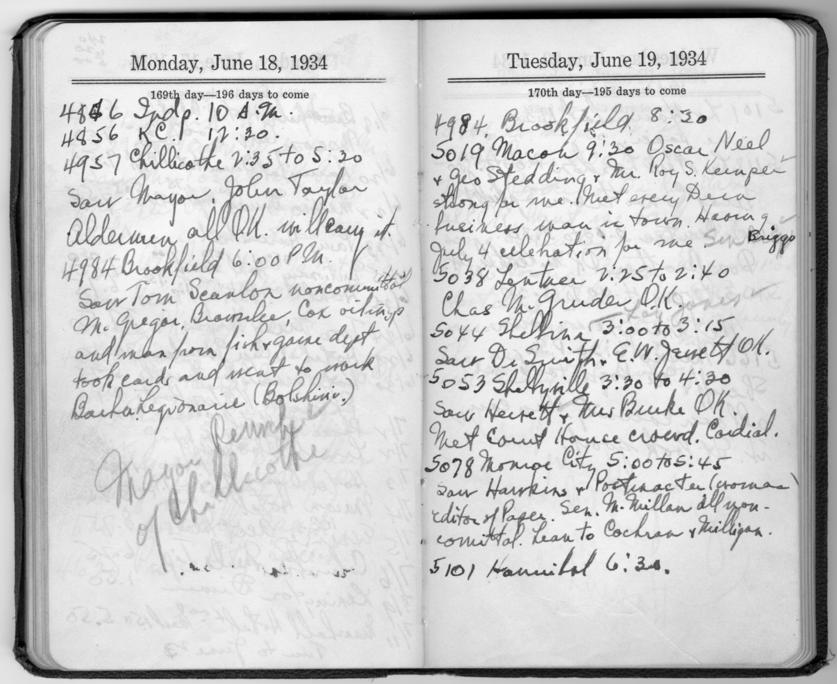 Monday, June 18, 1934
169th day—196 days to come
4846 Indp. 10 A.M.
4856 K.C. 12:30.
4957 Chillicothe 2:35 to 5:20
Saw Mayor, John Taylor
Aldermen all OK. will carry it
4984 Brookfield 6:00 P.M.
Saw Tom Scanlon noncommital
McGregor, Brownlee, Cox
and man from fish & game dept
took cards and went to work
Legionaire (Bolshivi.)
Mayor
of Chillicothe
Tuesday, June 19, 1934
170th day—195 days to come
4984, Brookfield 8:30
5019 Macon 9:30 Oscar Neel
& Geo Stedding & Mr. Roy S. Kemper
strong for me. Met every Dem
business man in town. Having
July 4 celebration for me Sen Briggs
5038 Lentner 2:25 to 2:40
Chas McGruder OK.
Fay Jones
5044 Shelbina 3:00 to 3:15
Saw Dr Smith, E.W. Jewett OK.
5053 Shelbyville 3:30 to 4:30
Saw Hewett & Mrs Burke OK.
Met Court House crowd. Cordial.
5078 Monroe City 5:00 to 5:45
Saw Hawkins & Postmaster (woman)
editor of Paper. Sen. McMillan all non-
comittal. Lean to Cochran & Milligan.
5101 Hannibal 6:30.